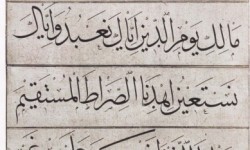 مالك يوم الدين إياك نعبد وإياك
نستعين اهدنا الصراط المستقيم